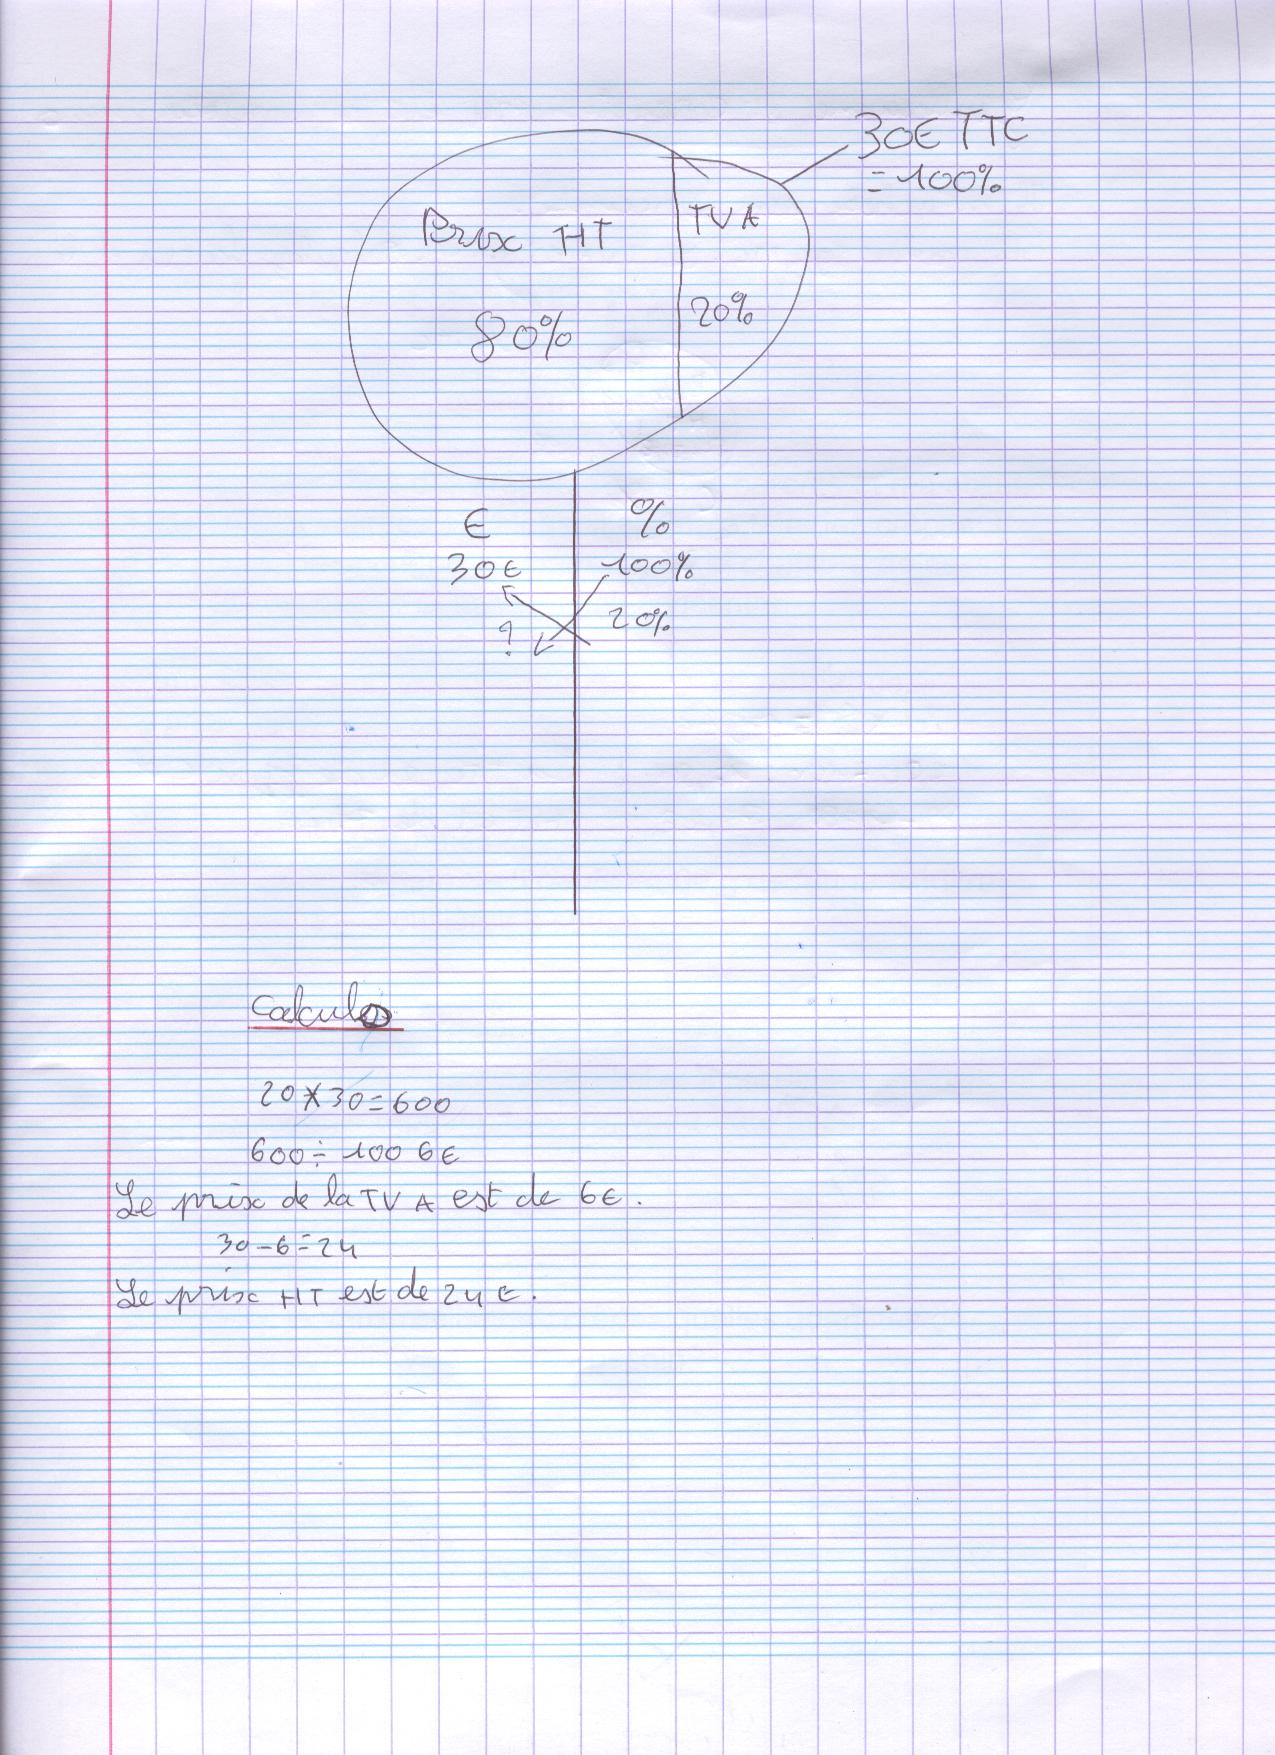 30€ TTC
= 100%
Prix HT
TVA
80%
20%
€ %
30€ 100%
? 20%
Calculs
20 * 30 = 600
600 ÷ 100 6€
Le prix de la TVA est de 6€.
30 - 6 = 24
Le prix HT est de 24€.